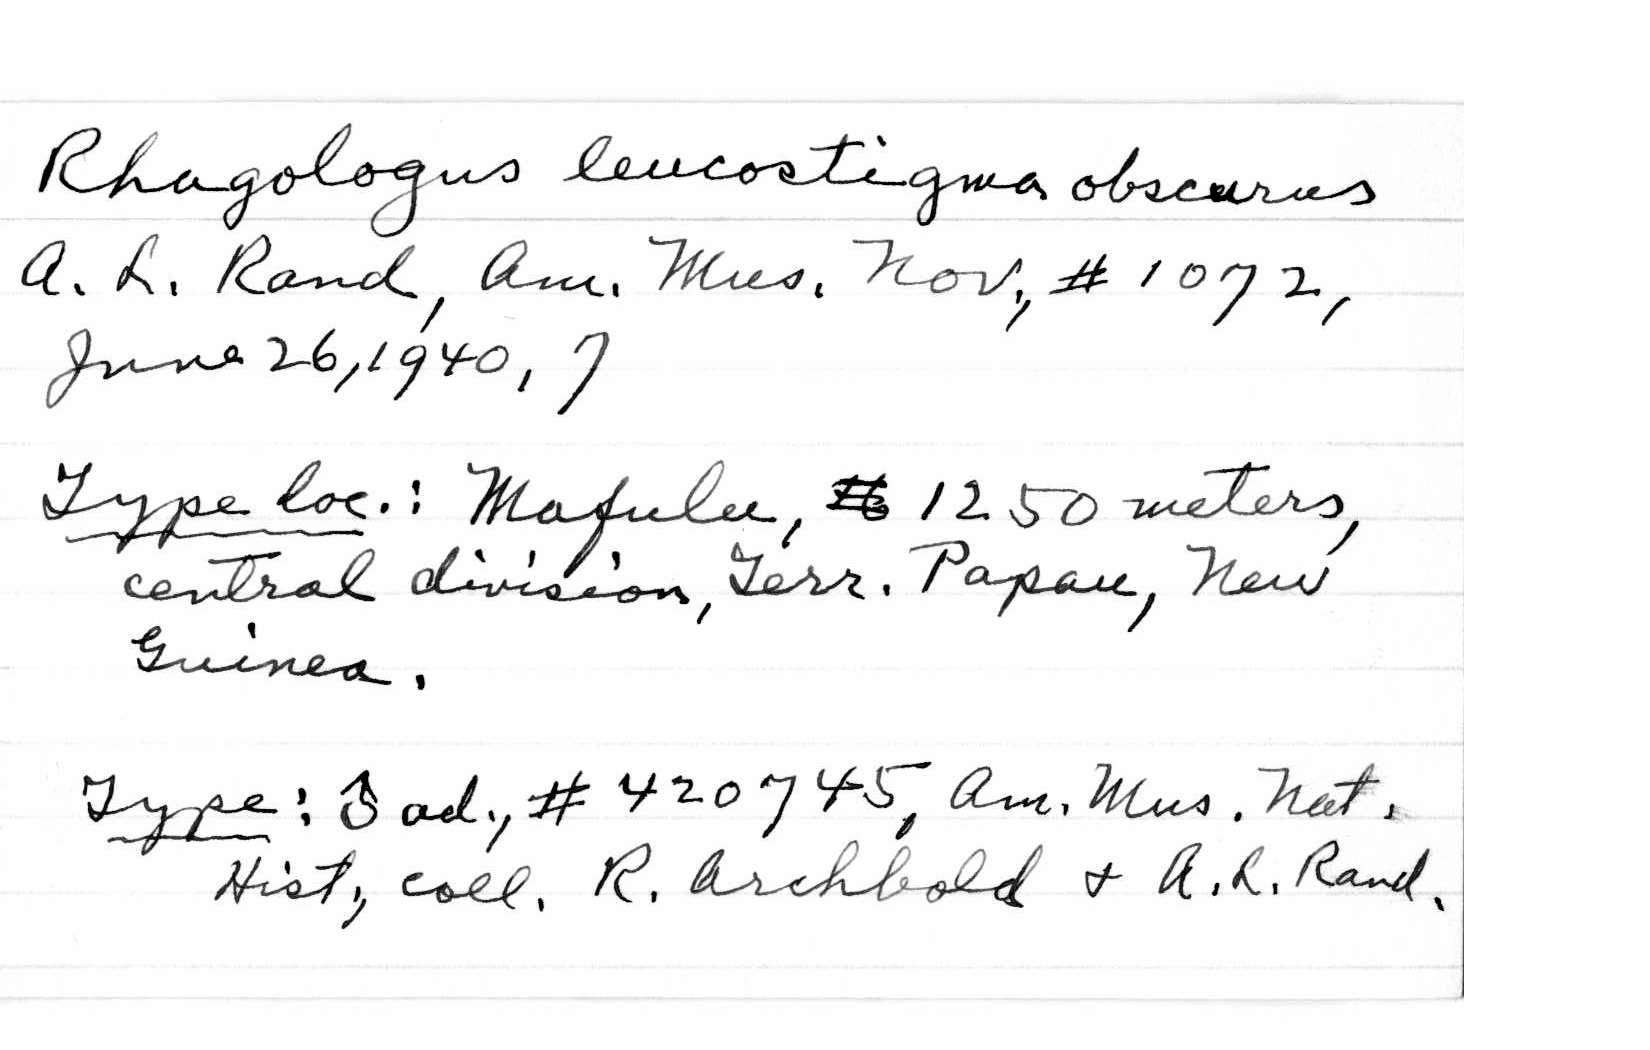 Rhagologus leucostigma obscurus
A. L. Rand, Am. Mus. Nov., # 1072,
June 26, 1940, 7
Type loc.: Mafulu, 1250 meters,
central division, Terr. Papau, New
Guinea.
Type: ♂ ad., # 420745, Am. Mus. Nat.
Hist., coll. R. Archbold + A. L. Rand.